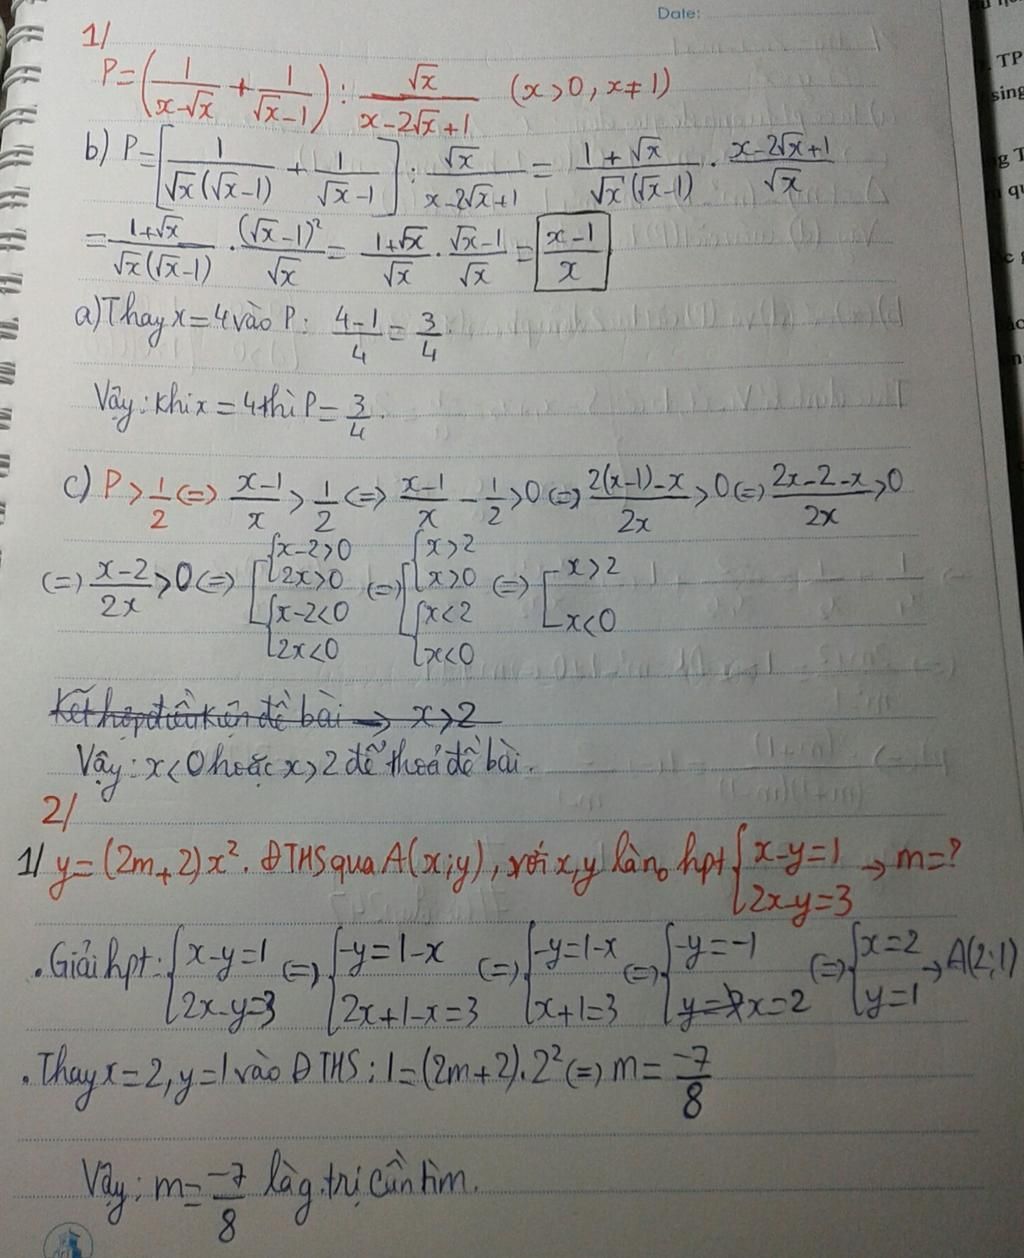 Date:
1/
P=(1/(x-√x) + 1/(√x-1)) : √x/(x-2√x+1) (x>0, x≠1)
b) P=[1/(√x(√x-1)) + 1/(√x-1)] : √x/(x-2√x+1) = (1+√x)/(√x(√x-1)) . (x-2√x+1)/√x
= (1+√x)/(√x(√x-1)) . (√x-1)²/√x = (1+√x)/√x . (√x-1)/√x = (x-1)/x
a) Thay x=4 vào P: (4-1)/4 = 3/4.
Vậy: Khi x=4 thì P=3/4.
c) P>1/2 (=) (x-1)/x > 1/2 (=) (x-1)/x - 1/2 >0 (=) (2(x-1)-x)/2x >0 (=) (2x-2-x)/2x >0
(=) (x-2)/2x >0 (=) [{x-2>0 2x>0 {x-2<0 2x<0 (=) [{x>2 x>0 {x<2 x<0 (=) [x>2 x<0
Kết hợp điều kiện đề bài → x>2
Vậy: x<0 hoặc x>2 để thoả đề bài.
2/
1/ y=(2m+2)x². ĐTHS qua A(x;y), với x,y là n₀ hpt {x-y=1 2x-y=3 → m=?
. Giải hpt: {x-y=1 2x-y=3 (=) {-y=1-x 2x+1-x=3 (=) {-y=1-x x+1=3 (=) {-y=-1 x=2 (=) {x=2 y=1 → A(2;1)
. Thay x=2, y=1 vào ĐTHS: 1=(2m+2).2² (=) m=-7/8
Vậy: m=-7/8 là g.trị cần tìm.
TP
sing
g T